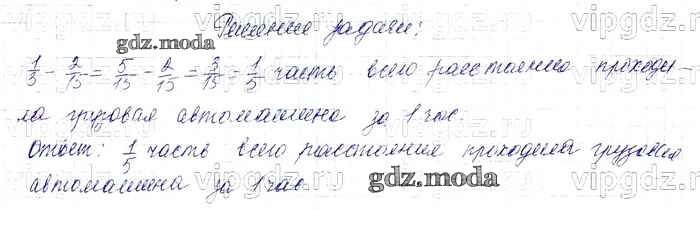 Решение задачи:
1/3 - 2/15 = 5/15 - 2/15 = 3/15 = 1/5 часть всего расстояния проходи-
ла грузовая автомашина за 1 час.
Ответ: 1/5 часть всего расстояния проходила грузовая
автомашина за 1 час.
gdz.moda
gdz.moda
vipgdz.ru